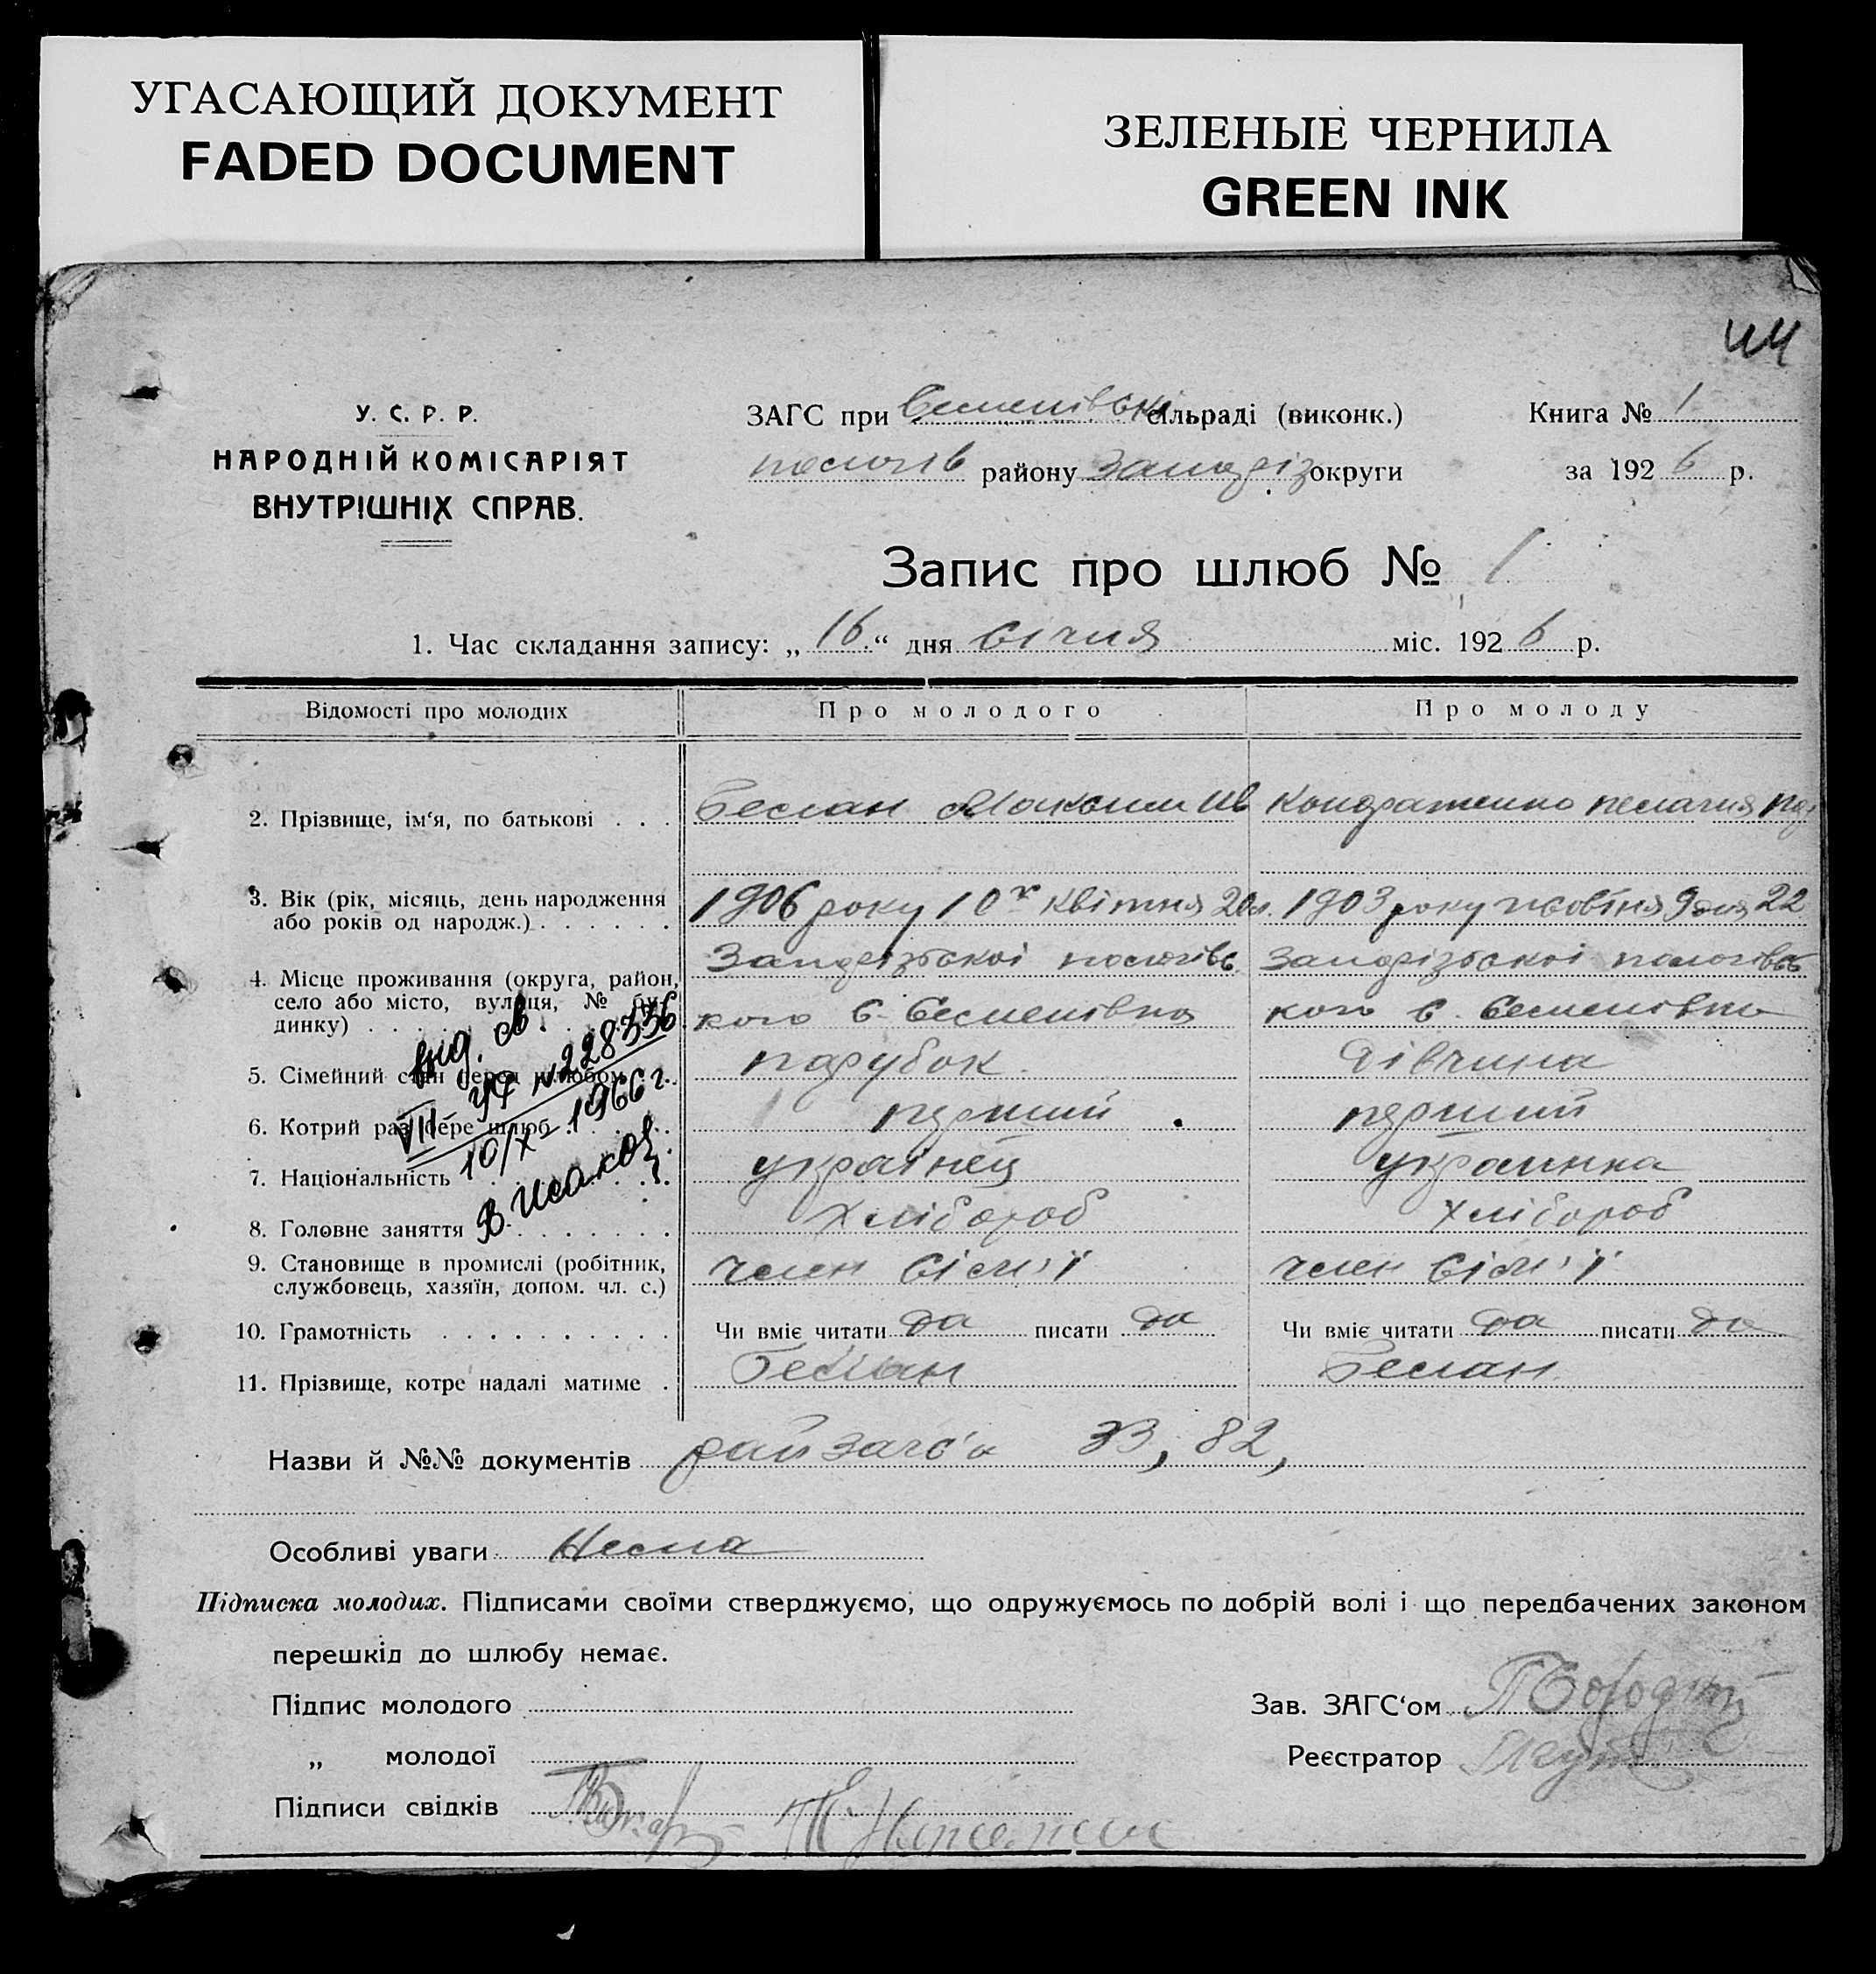 УГАСАЮЩИЙ ДОКУМЕНТ
FADED DOCUMENT
ЗЕЛЕНЫЕ ЧЕРНИЛА
GREEN INK
44
У. С. Р. Р.
НАРОДНІЙ КОМІСАРІЯТ
ВНУТРІШНІХ СПРАВ.
ЗАГС при Семенівській сільраді (виконк.)
пологів району Запоріз округи
Книга № 1
за 1926 р.
Запис про шлюб № 1
1. Час складання запису: „16“ дня січня міс. 1926 р.
Відомості про молодих
Про молодого
Про молоду
2. Прізвище, ім‘я, по батькові . . .
Беслан Максим Ив
Кондратенко пелагия
3. Вік (рік, місяць, день народження
або років од народж.) . . . . . .
1906 року 10г квітня 20л.
1903 року жовтня 9 дня 22
4. Місце проживання (округа, район,
село або місто, вулиця, № бу-
динку) . . . . .
Запорізької пологівс
кого с. Семенівка
Запорізької пологівсь
кого с. Семенівка
5. Сімейний стан перед шлюбом . .
парубок
дівчина
6. Котрий раз бере шлюб . . . . .
перший
перший
7. Національність . . . .
українец
украинка
8. Головне заняття . . . . . . .
хлібороб
хлібороб
9. Становище в промислі (робітник,
службовець, хазяїн, допом. чл. с.)
член сім'ї
член сім'ї
10. Грамотність . . . . . . . . . .
Чи вміє читати да писати да
Чи вміє читати да писати да
11. Прізвище, котре надалі матиме .
Беслан
Беслан
VII УЯ №228336
10/X-1966 г.
Назви й №№ документів райзагс'а 33, 82,
Особливі уваги Нема
Підписка молодих. Підписами своїми стверджуємо, що одружуємось по добрій волі і що передбачених законом
перешкід до шлюбу немає.
Підпис молодого
„ молодої
Підписи свідків
Зав. ЗАГС‘ом
Реєстратор